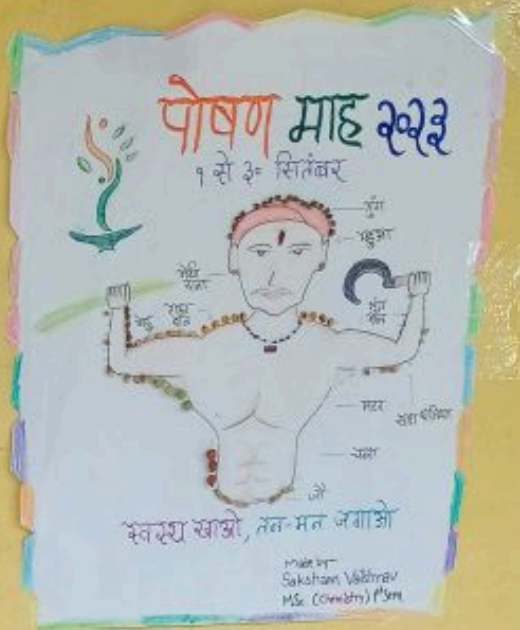 पोषण माह २०२३
१ से ३० सितंबर
मूंग
महुआ
गेहूं
मटर
चना
जौ
स्वस्थ खाओ, तन-मन जगाओ
Made by-
Saksham Vaishnav
MSc (Chemistry) Ist Sem